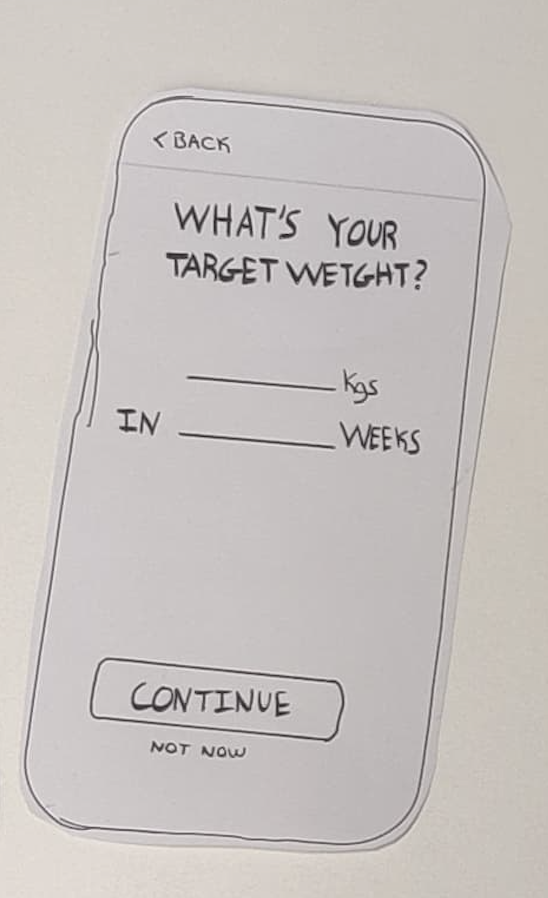 < BACK
WHAT'S YOUR
TARGET WEIGHT?
Kgs
IN WEEKS
CONTINUE
NOT NOW